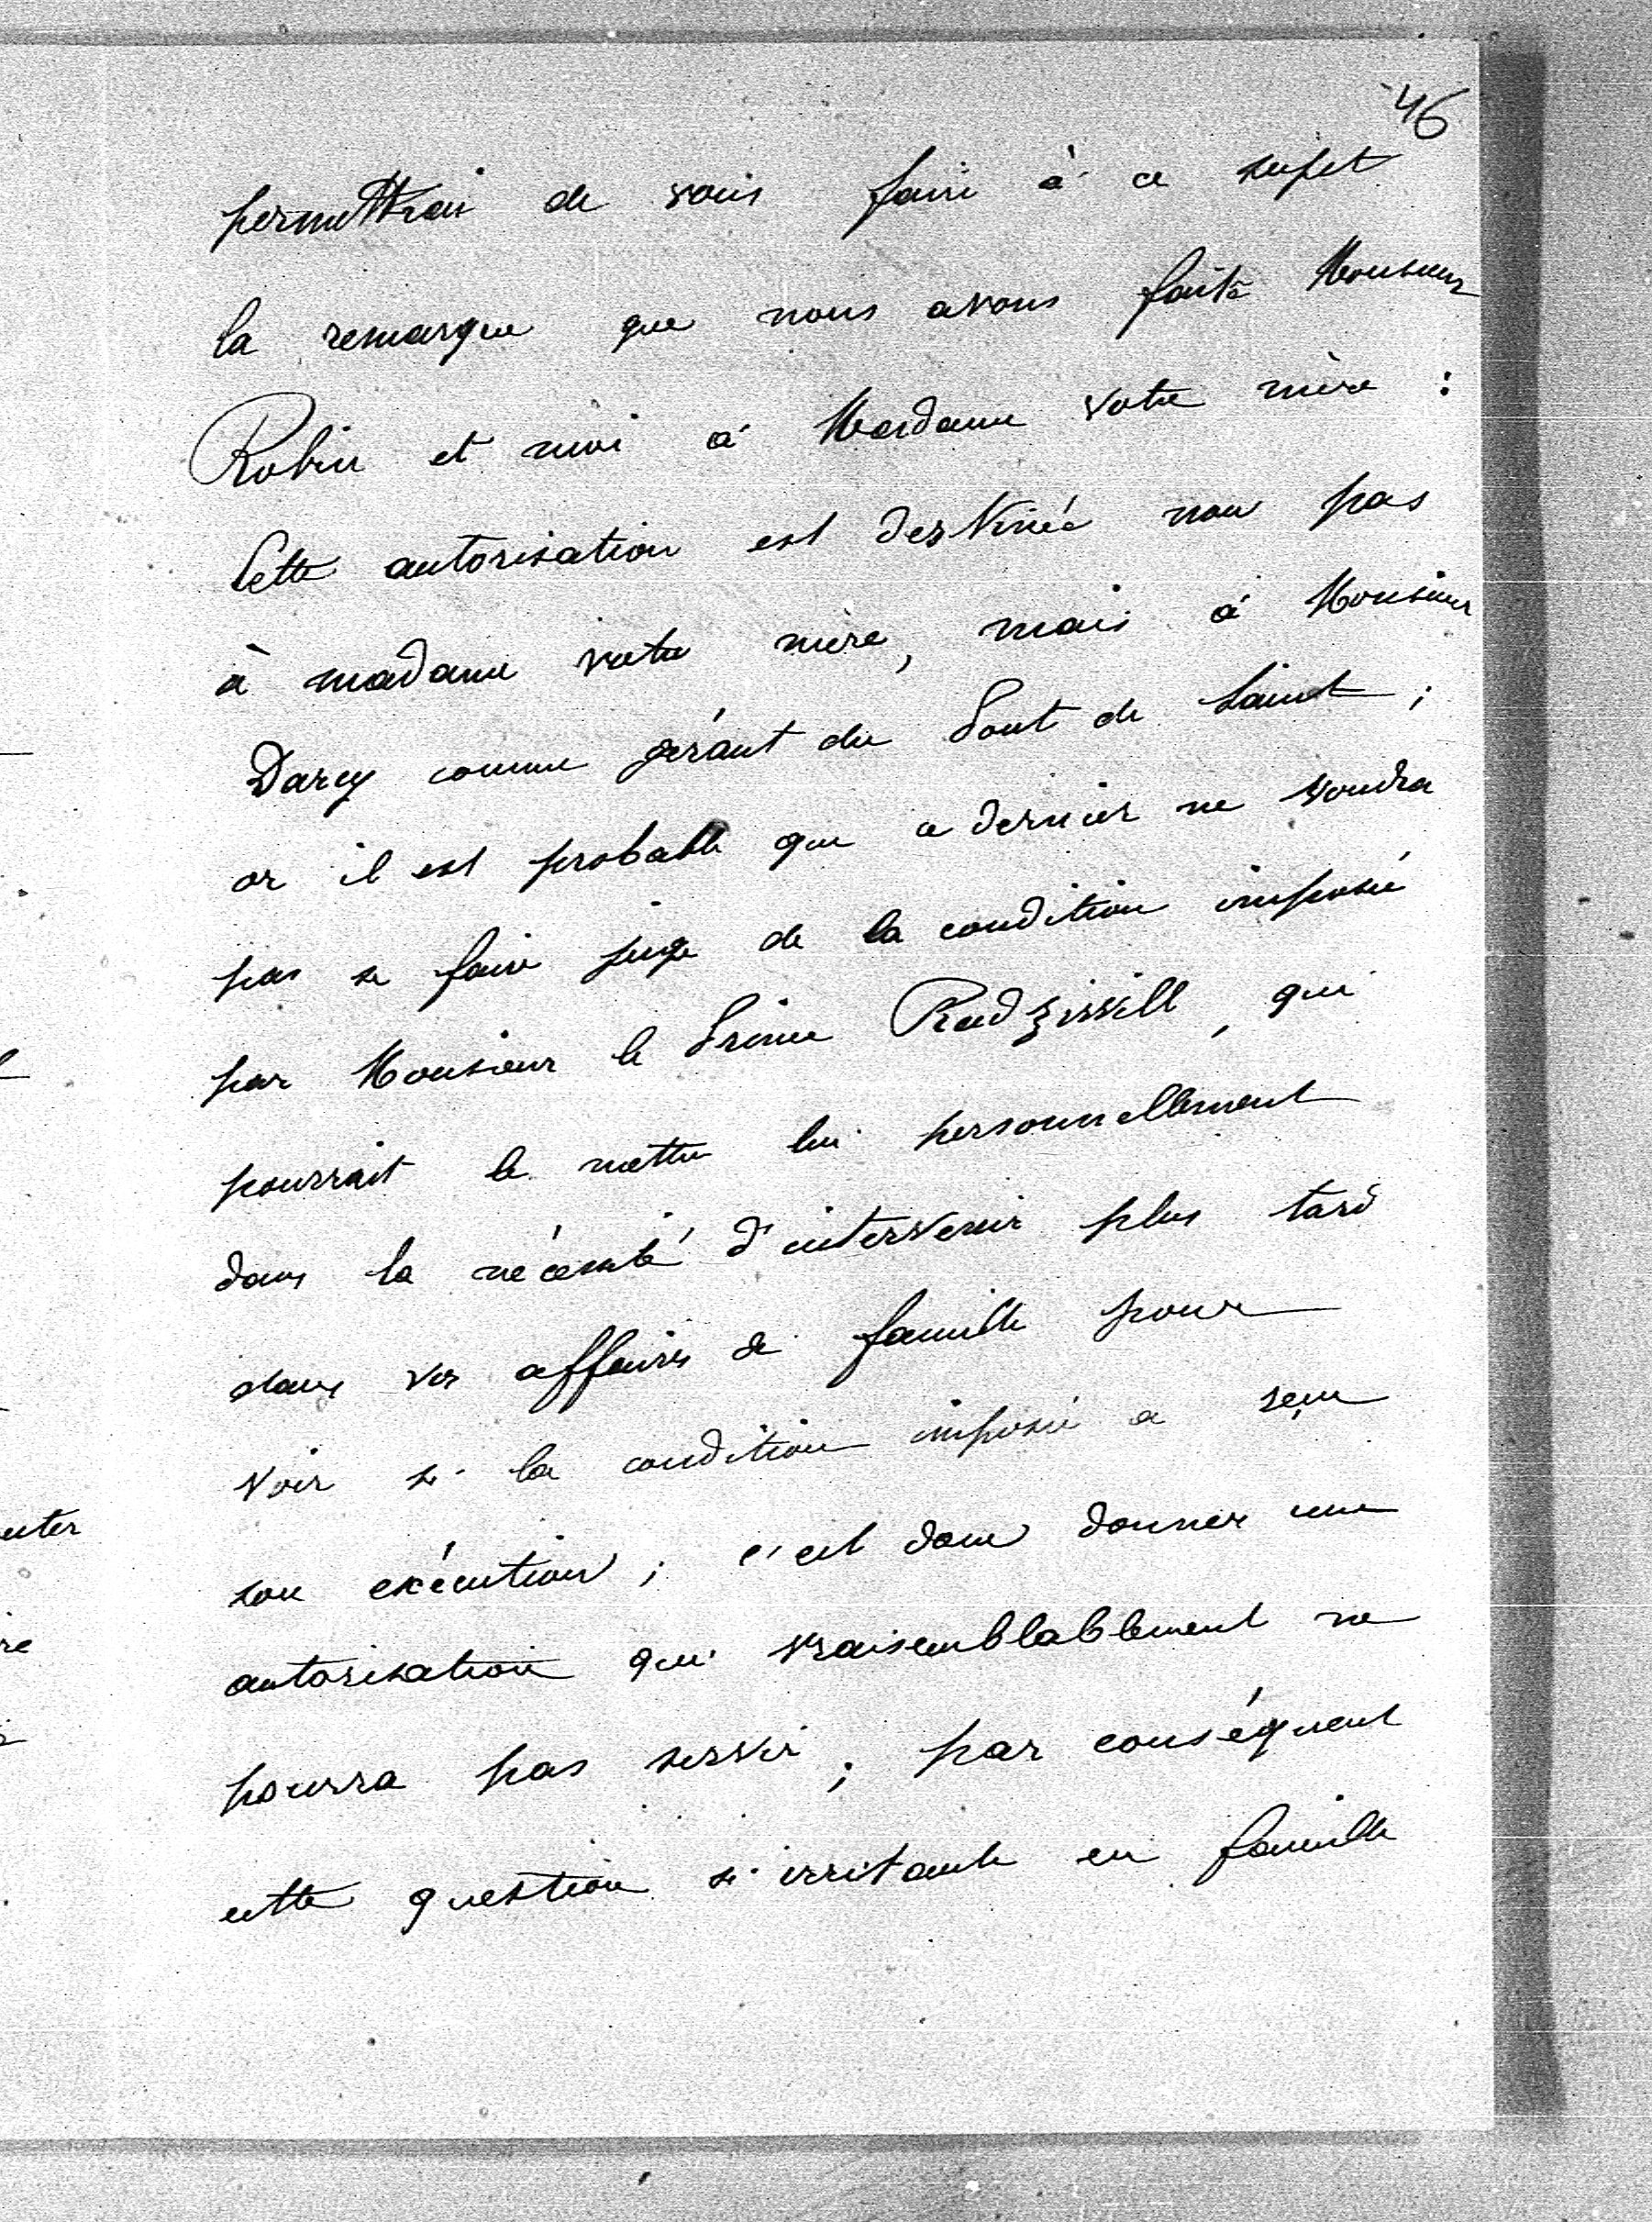 46
permettrai de vous faire à ce sujet
la remarque que nous avons faite Monsieur
Robin et moi à Madame votre mère :
Cette autorisation est destinée non pas
à madame votre mère, mais à Monsieur
Darcy comme gérant du Pont de Saint ;
or il est probable que ce dernier ne voudra
pas se faire juge de la condition imposée
par Monsieur le Prince Radziwill, qui
pourrait le mettre lui personnellement
dans la nécessité d'intervenir plus tard
dans vos affaires de famille pour
voir si la condition imposée a reçu
son exécution ; c'est donc donner une
autorisation qui vraisemblablement ne
pourra pas servir ; par conséquent
cette question si irritante en famille
uter
re